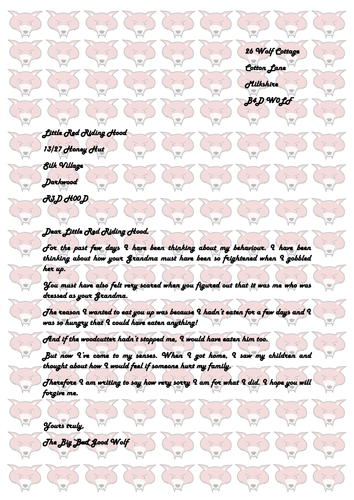 26 Wolf Cottage
Cotton Lane
Milkshire
B4D W0LF
Little Red Riding Hood
13/27 Honey Hut
Silk Village
Darkwood
R3D H00D
Dear Little Red Riding Hood,
For the past few days I have been thinking about my behaviour. I have been
thinking about how your Grandma must have been so frightened when I gobbled
her up.
You must have also felt very scared when you figured out that it was me who was
dressed as your Grandma.
The reason I wanted to eat you up was because I hadn't eaten for a few days and I
was so hungry that I could have eaten anything!
And if the woodcutter hadn't stopped me, I would have eaten him too.
But now I've come to my senses. When I got home, I saw my children and
thought about how I would feel if someone hurt my family.
Therefore I am writing to say how very sorry I am for what I did. I hope you will
forgive me.
Yours truly,
The Big Bad Good Wolf